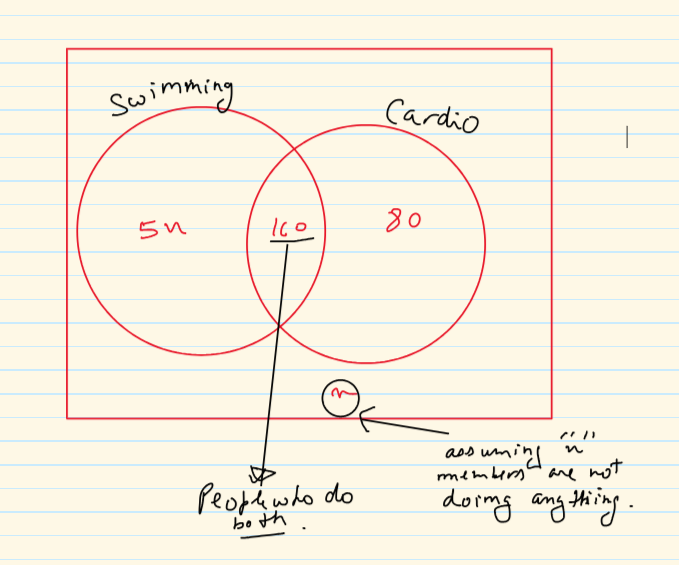 Swimming
Cardio
5n
160
80
n
assuming "n"
members are not
doing anything.
People who do
both.